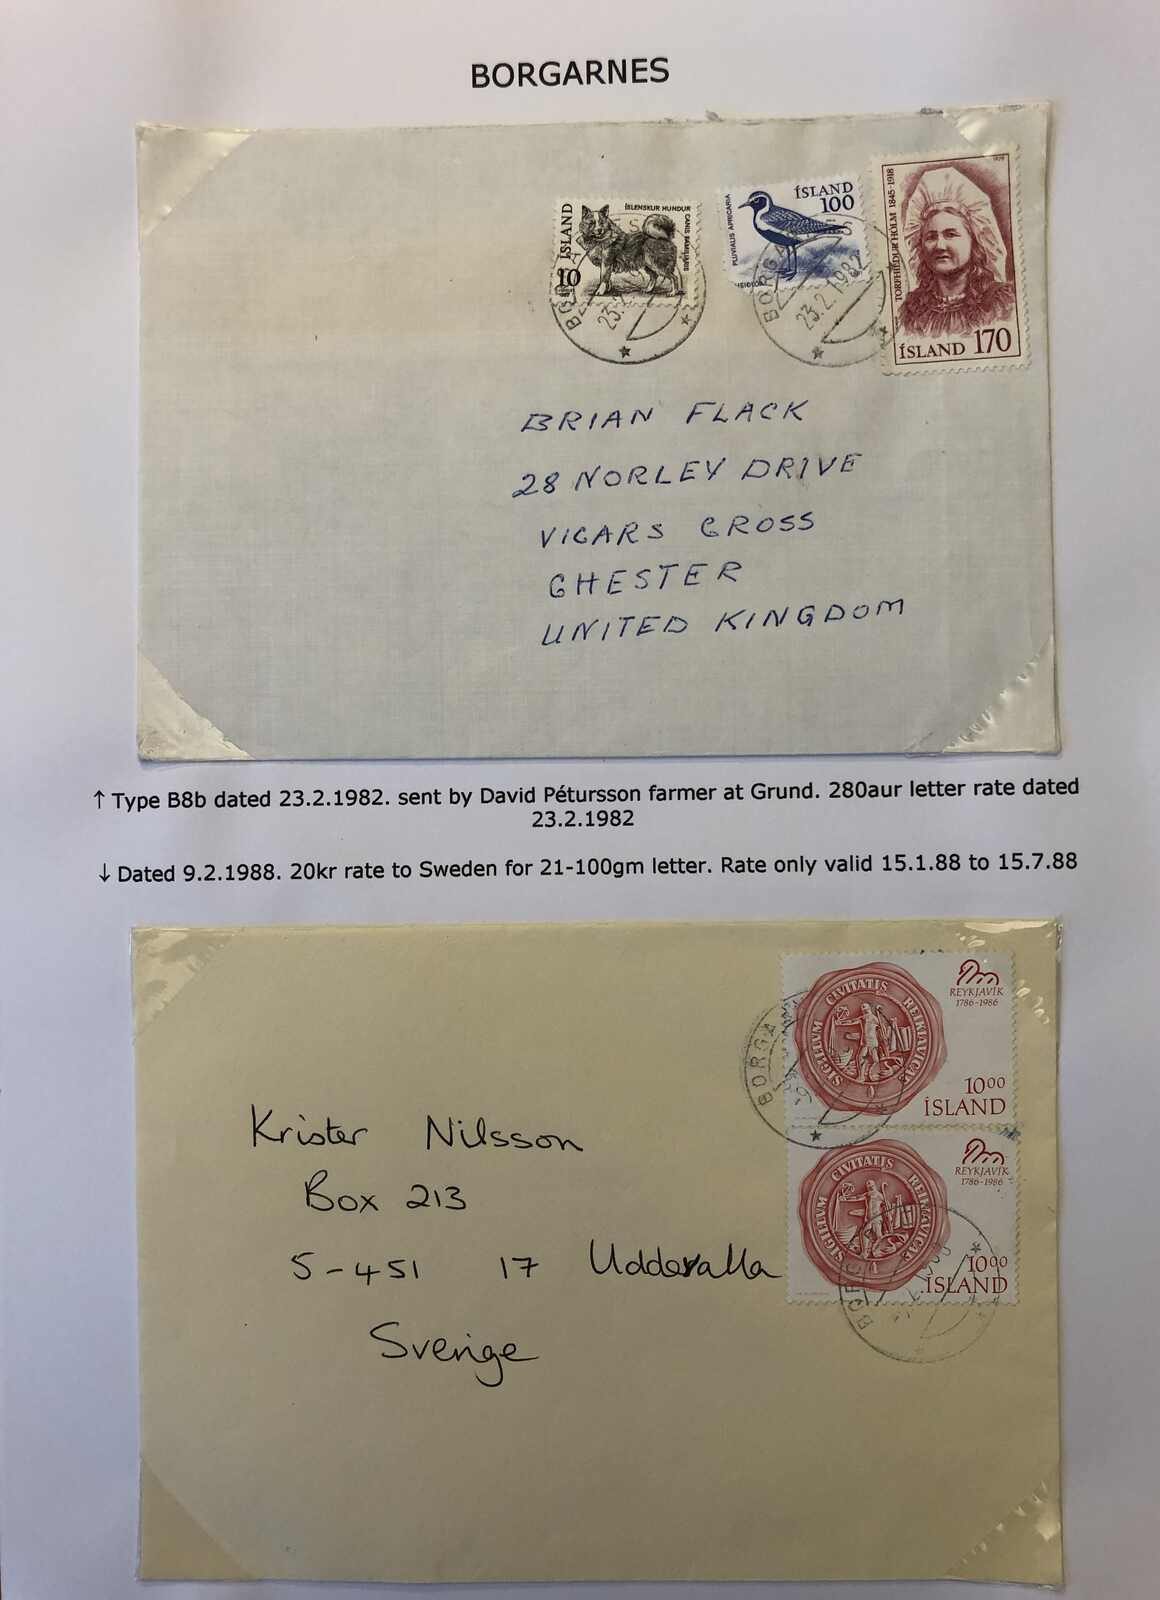 BORGARNES
ÍSLAND
10
ÍSLENSKUR HUNDUR
CANIS FAMILIARIS
PLUVIALIS APRICARIA
ÍSLAND
100
TORFHILDUR HÓLM 1845-1918
ÍSLAND 170
BORGA
23.2.1982
BRIAN FLACK
28 NORLEY DRIVE
VICARS CROSS
CHESTER
UNITED KINGDOM
↑ Type B8b dated 23.2.1982. sent by David Pétursson farmer at Grund. 280aur letter rate dated
23.2.1982
↓ Dated 9.2.1988. 20kr rate to Sweden for 21-100gm letter. Rate only valid 15.1.88 to 15.7.88
SIGILLVM CIVITATIS REIKIAVICAE
REYKJAVÍK
1786-1986
1000
ÍSLAND
BORGA
SIGILLVM CIVITATIS REIKIAVICAE
REYKJAVÍK
1786-1986
1000
ÍSLAND
Krister Nilsson
Box 213
S-451 17 Uddevalla
Sverige